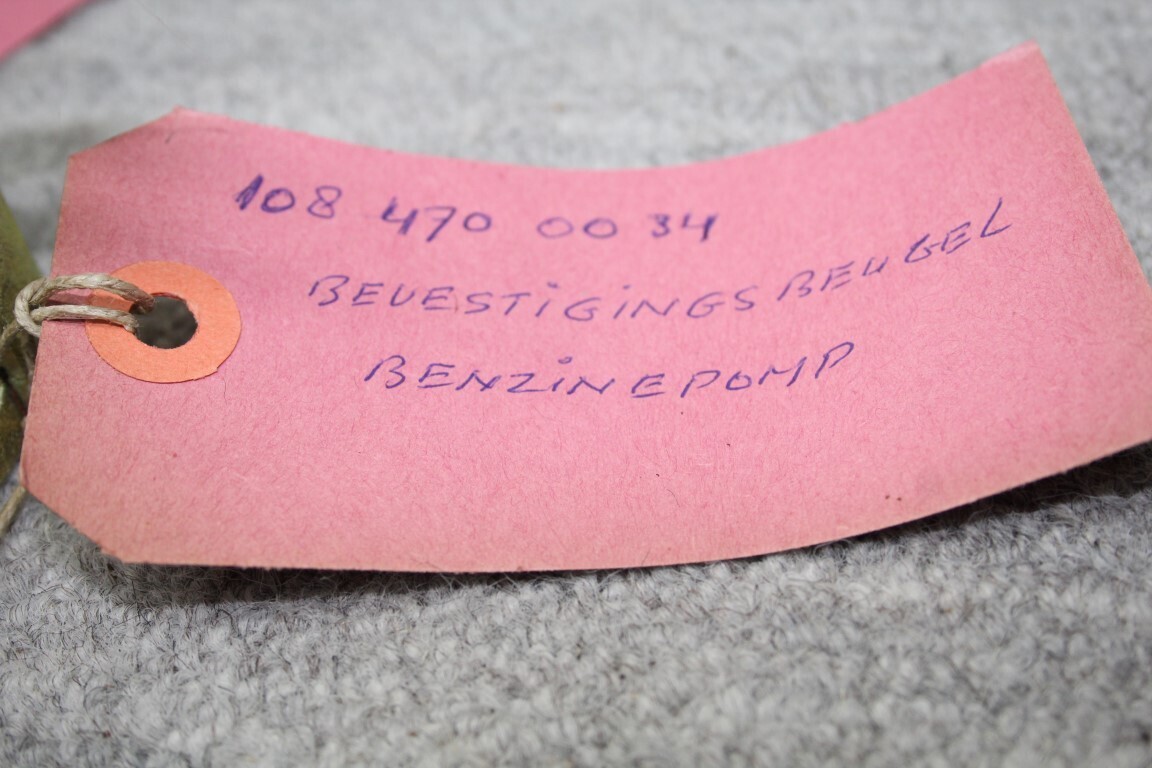 108 470 00 34
BEVESTiGiNGS BEUGEL
BENZiNEPOMP